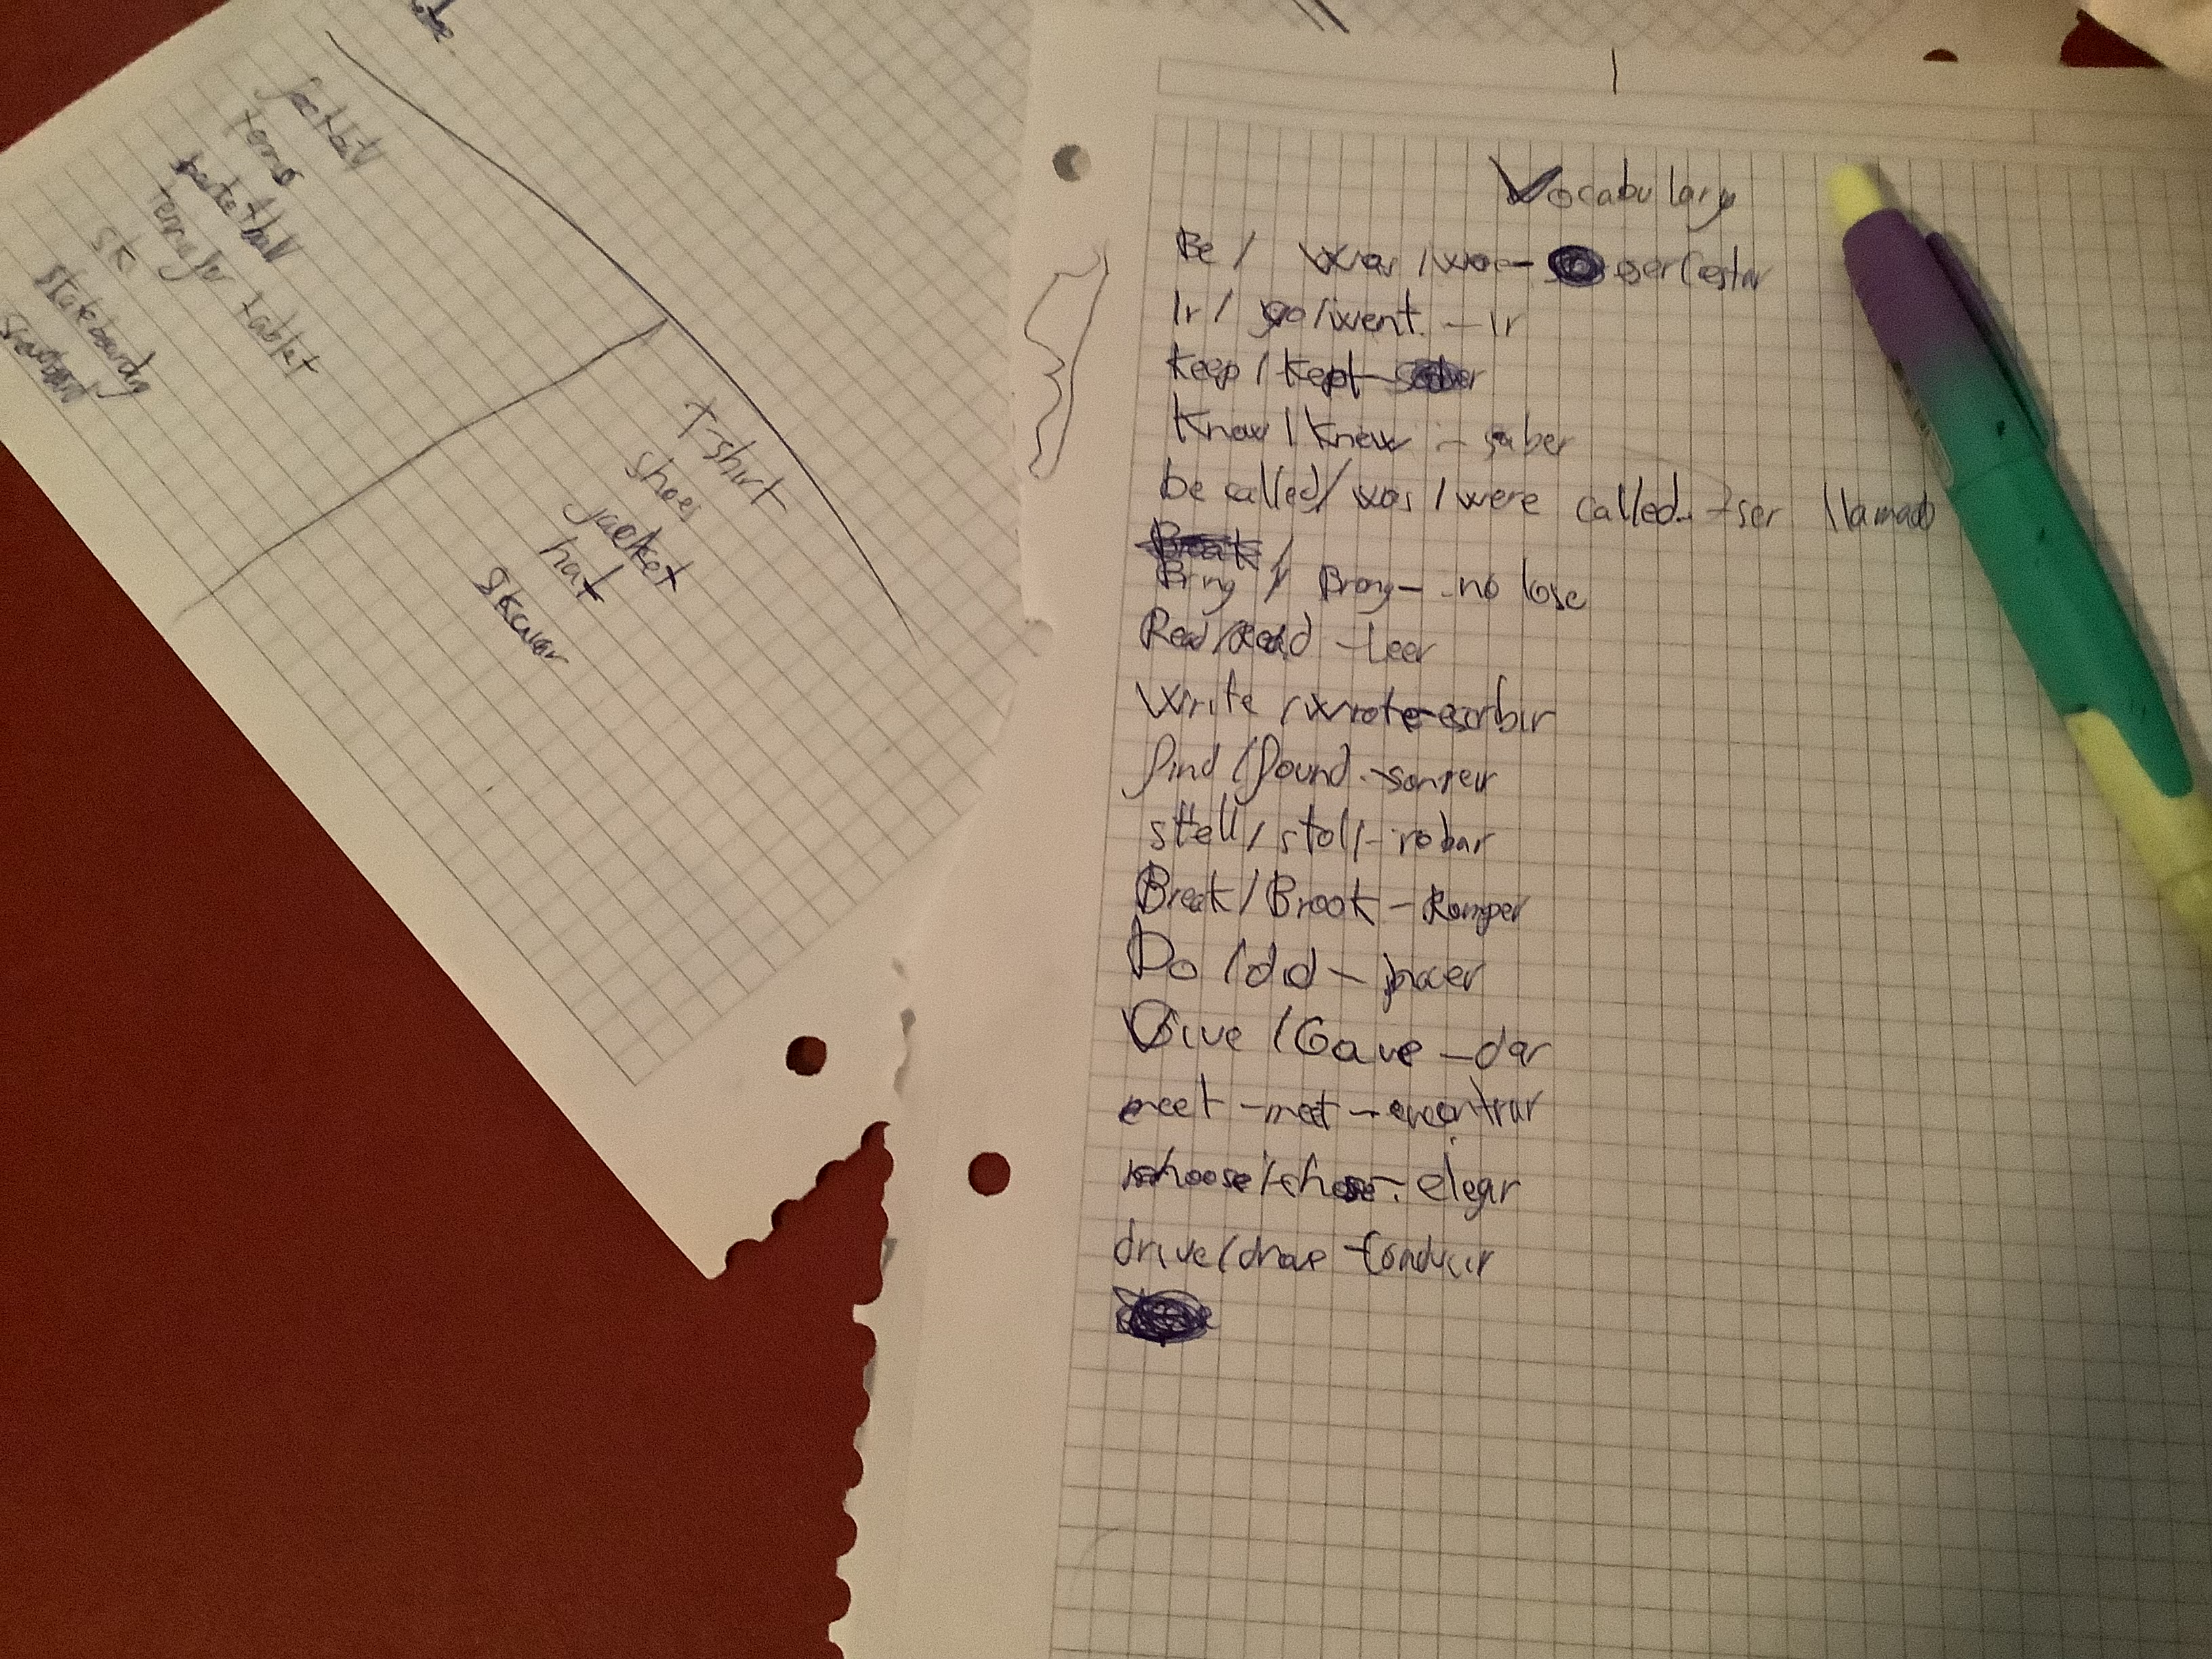 football
tenis
basketball
tennis for tablet
sk
skateboarding
T-shirt
shoes
jacket
hat
Vocabulary
Be / was / - ser/estar
Ir / go/went. - Ir
Keep / Kept -
Know / Knew - saber
be called / was / were called - ser llamado
Bring / Brong - no lose
Read/Read - Leer
Write / wrote - escrbir
find / found -
stell / stoll - robar
Break / Brook - Romper
Do / did - hacer
Give / Gave - dar
meet - met - encontrar
choose / chose - elegir
drive / drove - Conducir